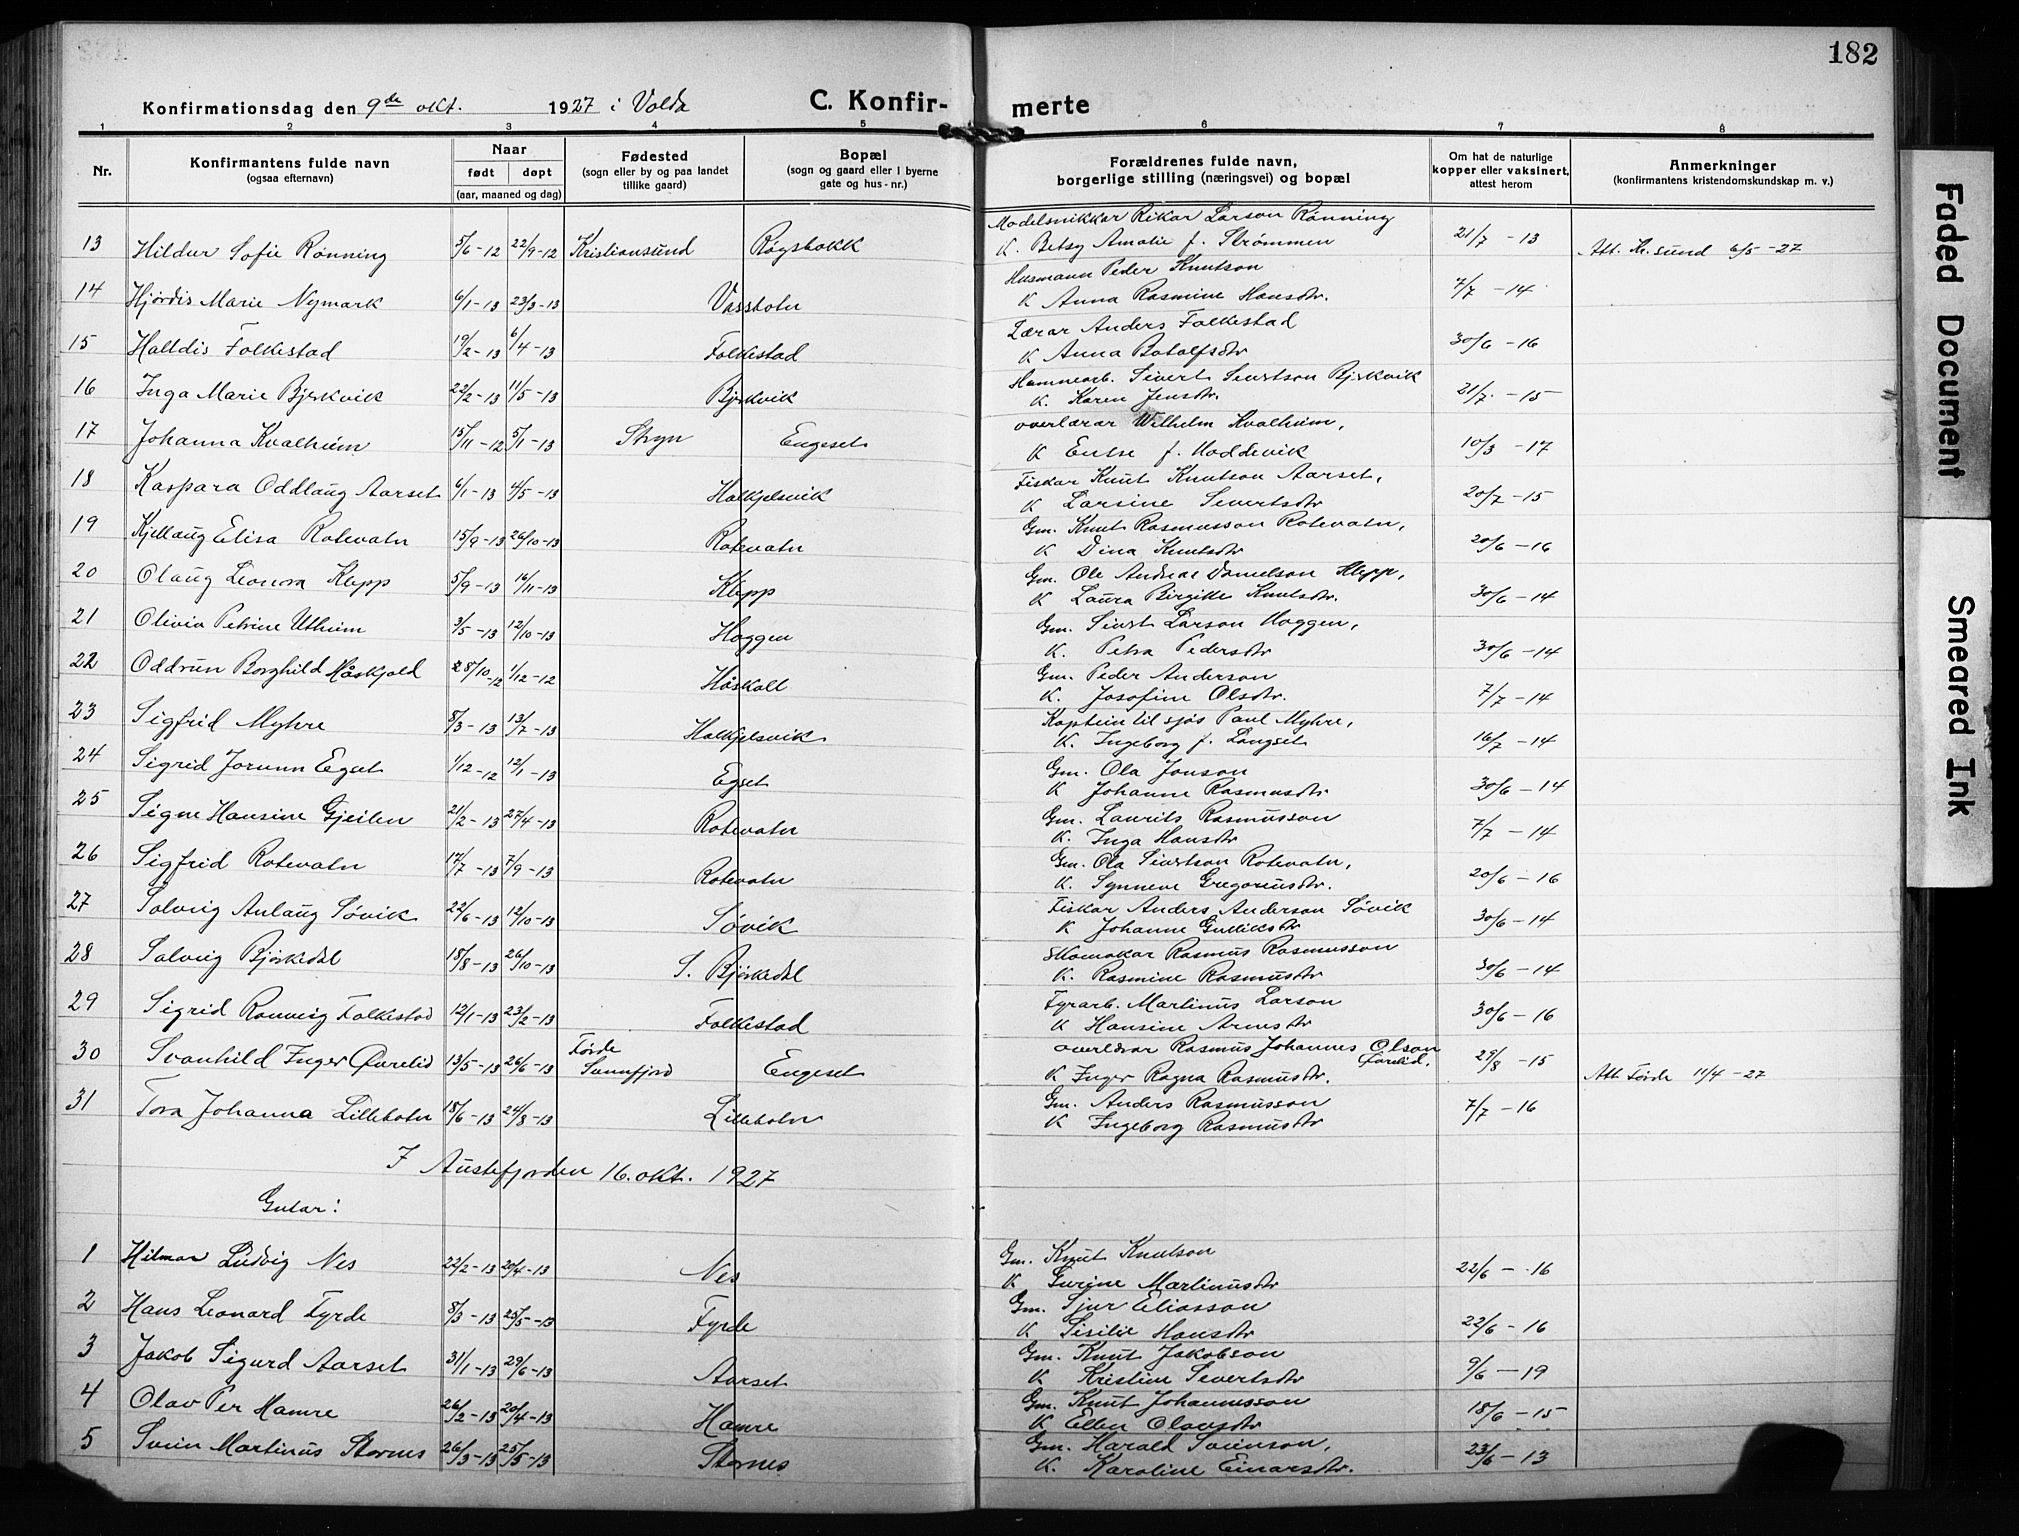 182
Konfirmationsdag den 9de okt. 1927 i Volda C. Konfir- merte
1 2 3 4 5 6 7 8
Nr. Konfirmantens fulde navn (ogsaa efternavn) Naar født døpt (aar, maaned og dag) Fødested (sogn eller by og paa landet tillike gaard) Bopæl (sogn og gaard eller i byerne gate og hus-nr.) Forældrenes fulde navn, borgerlige stilling (næringsvei) og bopæl Om hat de naturlige kopper eller vaksinert, attest herom Anmerkninger (konfirmantens kristendomskundskap m. v.)
13 Hildur Sofie Rønning 5/6-12 22/9-12 Kristiansund Røysbakk Modelsnikkar Rikar Larson Rønning
K. Betsy Amalie f. Strømmen 21/7 - 13 Att. Kr.sund 6/5 - 27
14 Hjørdis Marie Nymark 6/1-13 23/3-13 Vassbotn Husmann Peder Knutson
K Anna Rasmine Hansdtr. 7/7 - 14
15 Halldis Folkestad 19/2-13 6/4-13 Folkestad Lærar Anders Folkestad
K Anna Botolfsdtr 30/6 - 16
16 Inga Marie Bjørkvik 22/2-13 11/5-13 Bjørkvik Hamnearb. Sivert Sivertson Bjørkvik
K. Karen Jensdtr. 21/7 - 15
17 Johanna Kvalheim 15/11-12 5/1-13 Stryn Engeset overlærar Wilhelm Kvalheim,
K f. Hoddevik 10/3 - 17
18 Kaspara Oddlaug Aarset 6/1-13 4/5-13 Halkjelsvik Fiskar Knut Knutson Aarset,
K Larsine Severtsdtr 20/7 - 15
19 Kjellaug Elisa Rotevatn 15/9-13 26/10-13 Rotevatn Gm. Knut Rasmusson Rotevatn,
K Dina Knutsdtr 20/6 - 16
20 Olaug Leonora Klepp 5/9-13 16/11-13 Klepp Gm. Ole Andreas Danielson Klepp,
K Laura Birgitte Knutsdtr. 30/6 - 14
21 Olivia Petrine Utheim 3/5-13 12/10-13 Hoggen Gm. Sivert Larson Hoggen,
K. Petra Pedersdtr 30/6 - 14
22 Oddrun Borghild Håskjold 28/10-12 1/12-12 Håskoll Gm. Peder Anderson
K. Josefine Olsdtr. 7/7 - 14
23 Sigfrid Myhre 8/3-13 13/7-13 Halkjelsvik Kaptein til sjøs Paul Myhre,
K. Ingeborg f. Langset 16/7 - 14
24 Sigrid Jorunn Egset 1/12-12 12/1-13 Egset Gm. Ola Jonson
K Johanne Rasmusdtr 30/6 - 14
25 Signe Hansine Gjeilen 21/2-13 27/4-13 Rotevatn Gm. Laurits Rasmusson
K. Inga Hansdtr 7/7 - 14
26 Sigfrid Rotevatn 17/7-13 7/9-13 Rotevatn Gm. Ola Sivertson Rotevatn,
K. Synneve Gregoriusdtr. 20/6 - 16
27 Solveig Anlaug Søvik 22/6-13 12/10-13 Søvik Fiskar Anders Anderson Søvik
K Johanne Gulliksdtr 30/6 - 14
28 Solveig Bjørkedal 18/8-13 26/10-13 S. Bjørkedal Skomakar Rasmus Rasmusson
K. Rasmine Rasmusdtr 30/6 - 14
29 Sigrid Ranveig Folkestad 12/1-13 23/2-13 Folkestad Fyrarb. Martinus Larson
K Hansine Arnesdtr 30/6 - 16
30 Svanhild Inger Øvrelid 13/5-13 26/6-13 Førde Sunnfjord Engeset overlærar Rasmus Johannes Olson Øvrelid,
K Inger Ragna Rasmusdtr. 29/8 - 15 Att. Førde 11/4 - 27
31 Tora Johanna Lillebotn 18/6-13 24/8-13 Lillebotn Gm. Anders Rasmusson
K Ingeborg Rasmusdtr 7/7 - 16
I Austefjorden 16. okt. 1927
Gutar:
1 Hilmar Ludvig Nes 22/2-13 20/4-13 Nes Gm. Knut Knutson
K Gurine Martinusdtr 22/6 - 16
2 Hans Leonard Fyrde 8/3-13 25/5-13 Fyrde Gm. Sjur Eliasson
K Sisilie Hansdtr 22/6 - 16
3 Jakob Sigurd Aarset 31/1-13 29/6-13 Aarset Gm. Knut Jakobson
K Kristine Severtsdtr 9/6 - 19
4 Olav Per Hamre 26/2-13 20/4-13 Hamre Gm. Knut Johannusson
K Ellen Olausdtr 18/6 - 15
5 Svein Martinus Stornes 26/3-13 25/5-13 Stornes Gm. Harald Sveinson,
K. Karoline Einarsdtr. 23/6 - 13
Faded Document
Smeared Ink